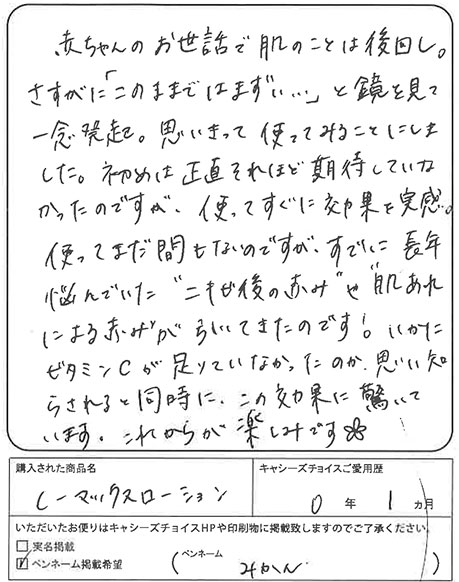 赤ちゃんのお世話で肌のことは後回し。
さすがに「このままではまずい…」と鏡を見て
一念発起。思いきって使ってみることにしま
した。初めは正直それほど期待していな
かったのですが、使ってすぐに効果を実感。
使ってまだ間もないのですが、すでに長年
悩んでいた"ニキビ後の赤み"や"肌あれ
による赤み"が引いてきたのです！いかに
ビタミンCが足りていなかったのか、思い知
らされると同時に、この効果に驚いて
います。これからが楽しみです
購入された商品名
キャシーズチョイスご愛用歴
シーマックスローション
0 年 1 ヵ月
いただいたお便りはキャシーズチョイスHPや印刷物に掲載致しますのでご了承ください。
実名掲載
ペンネーム掲載希望
(ペンネーム みかん )